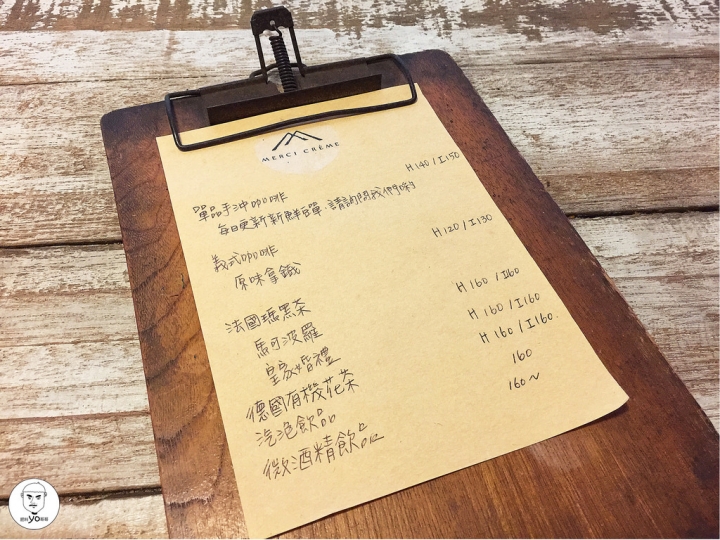 MERCI CRÈME
單品手沖咖啡 H 140 / I 150
每日更新新鮮豆單,請詢問我們喲
義式咖啡
原味拿鐵 H 120 / I 130
法國瑪黑茶
馬可波羅 H 160 / I 160
皇家婚禮 H 160 / I 160
德國有機花茶 H 160 / I 160.
汽泡飲品 160
微酒精飲品 160~
yo